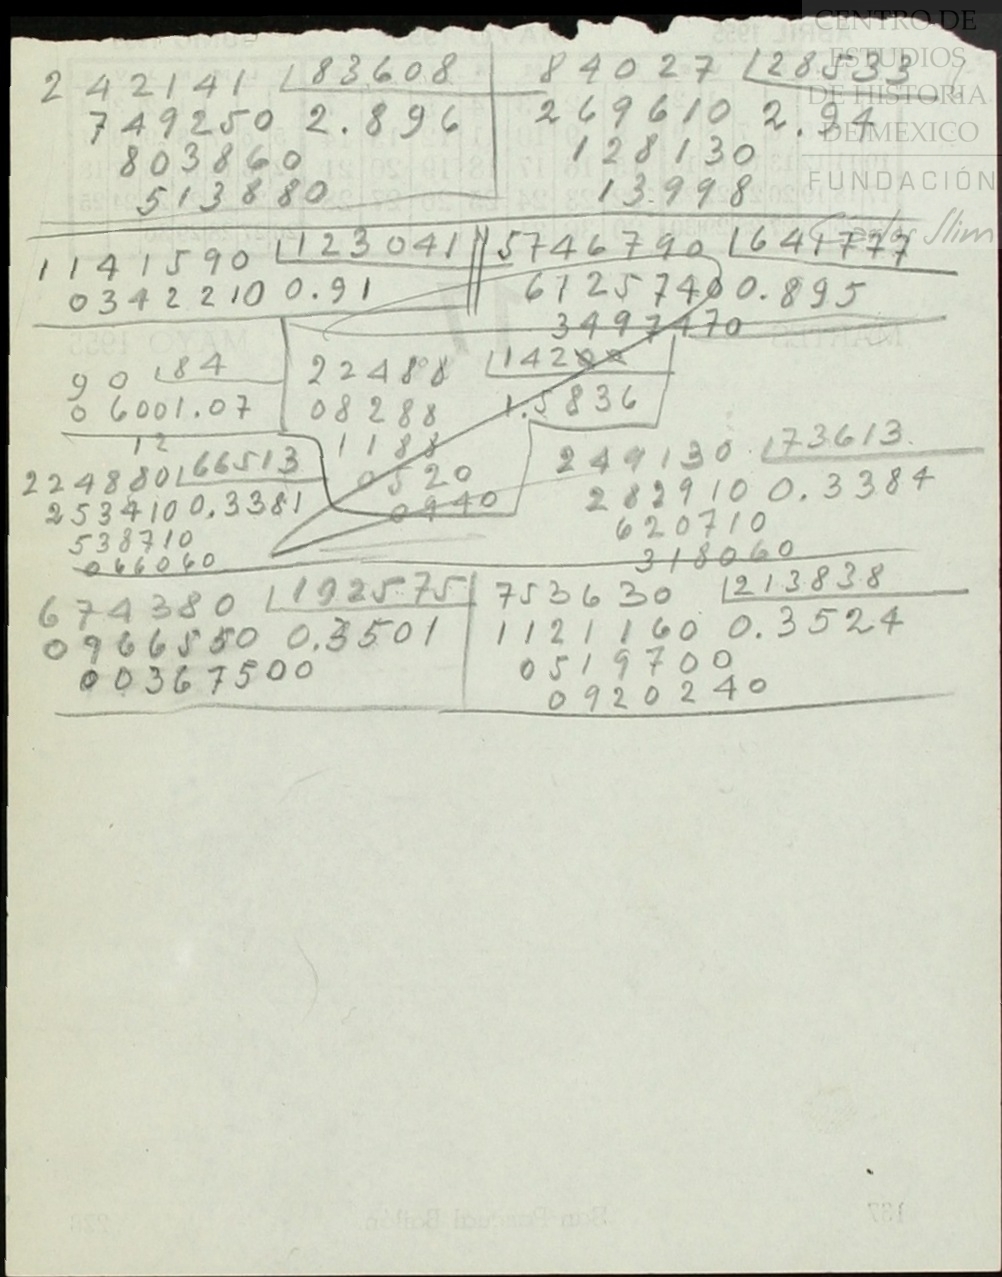 242141 83608
749250 2.896
803860
513880
84027 28533
269610 2.94
128130
13998
1141590 123041
0342210 0.91
5746790 641777
6125740 0.895
3497470
90 84
0600 1.07
12
22488 142
08288 1.5836
1188
0520
0940
224880 66513
253410 0.3381
538710
066060
249130 73613
282910 0.3384
620710
318060
674380 192575
0966550 0.3501
00367500
753630 213838
1121160 0.3524
0519700
0920240
CENTRO DE
ESTUDIOS
DE HISTORIA
DE MEXICO
FUNDACIÓN
Carlos Slim
ABRIL 1955
MARTES
17
MAYO 1955
137
San Pascual Bailón
228